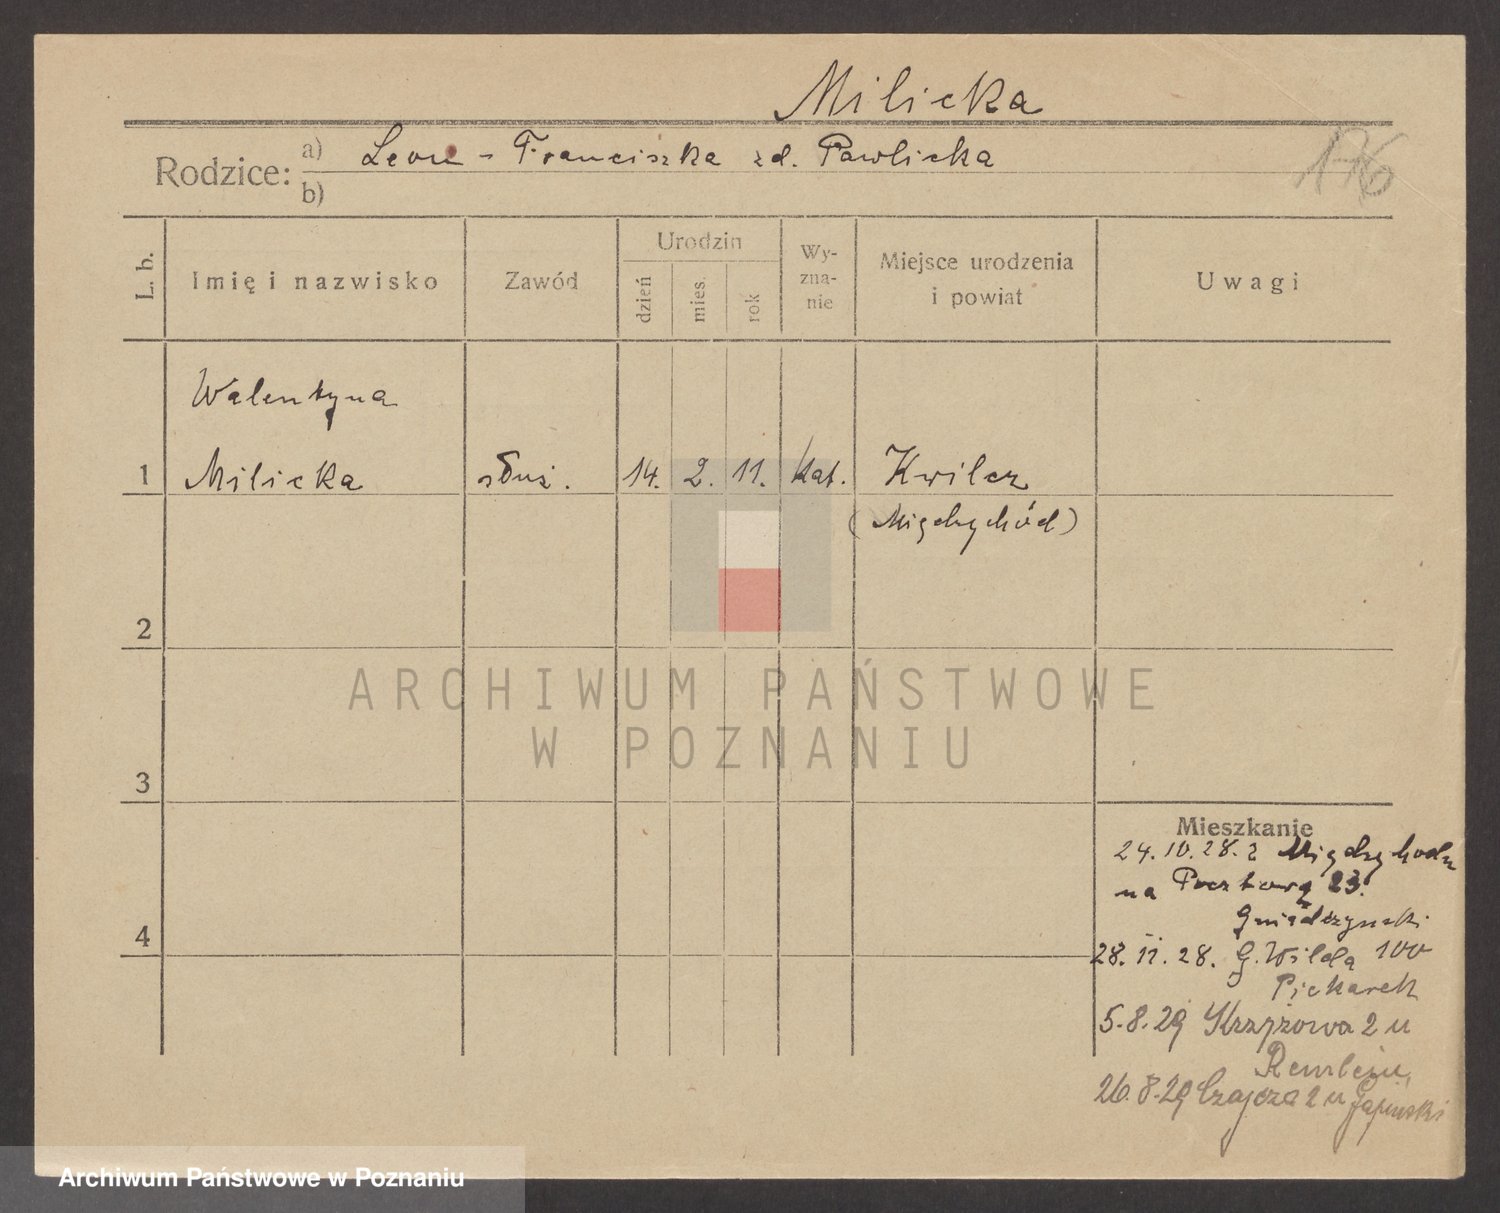 Milicka
Rodzice: a) Leon - Franciszka zd. Pawlicka
b)
176
L. b. Imię i nazwisko Zawód Urodzin dzień mies. rok Wy-zna-nie Miejsce urodzenia i powiat Uwagi
Walentyna
1 Milicka służ. 14. 2. 11. kat. Kwilcz
(Międzychód)
2
ARCHIWUM PAŃSTWOWE
W POZNANIU
3
Mieszkanie
24.10.28. z Międzychodu
na Pocztową 23.
4
28. 11. 28. G. Wilda 100
Piekarek
5.8.29 Krzyżowa 2 u
26.8.29 Czajcza 2 u
Archiwum Państwowe w Poznaniu